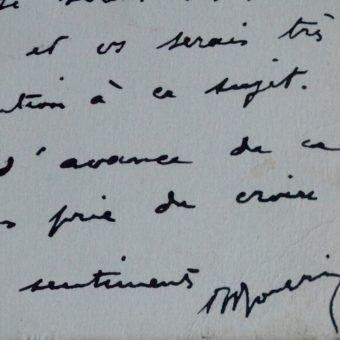 et vs serais très
ution à ce sujet.
d'avance de ca
s prie de croire
sentiments